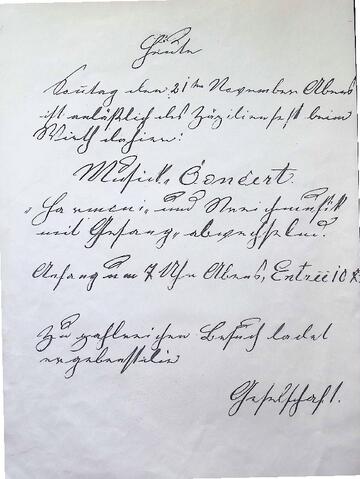 Heute
Sontag den 21ten November Abens
ist anläßlich des Zäzilienfest beim
Wirth dahier:
Musick-Concert.
"Harmoni- und Streichmusik
mit Gesang" abwechselnd.
Anfang um 7 Uhr Abens, Entreé 10 x.
Zu zahlreichen Besuch ladet
ergebenst ein
Gesellschaft.